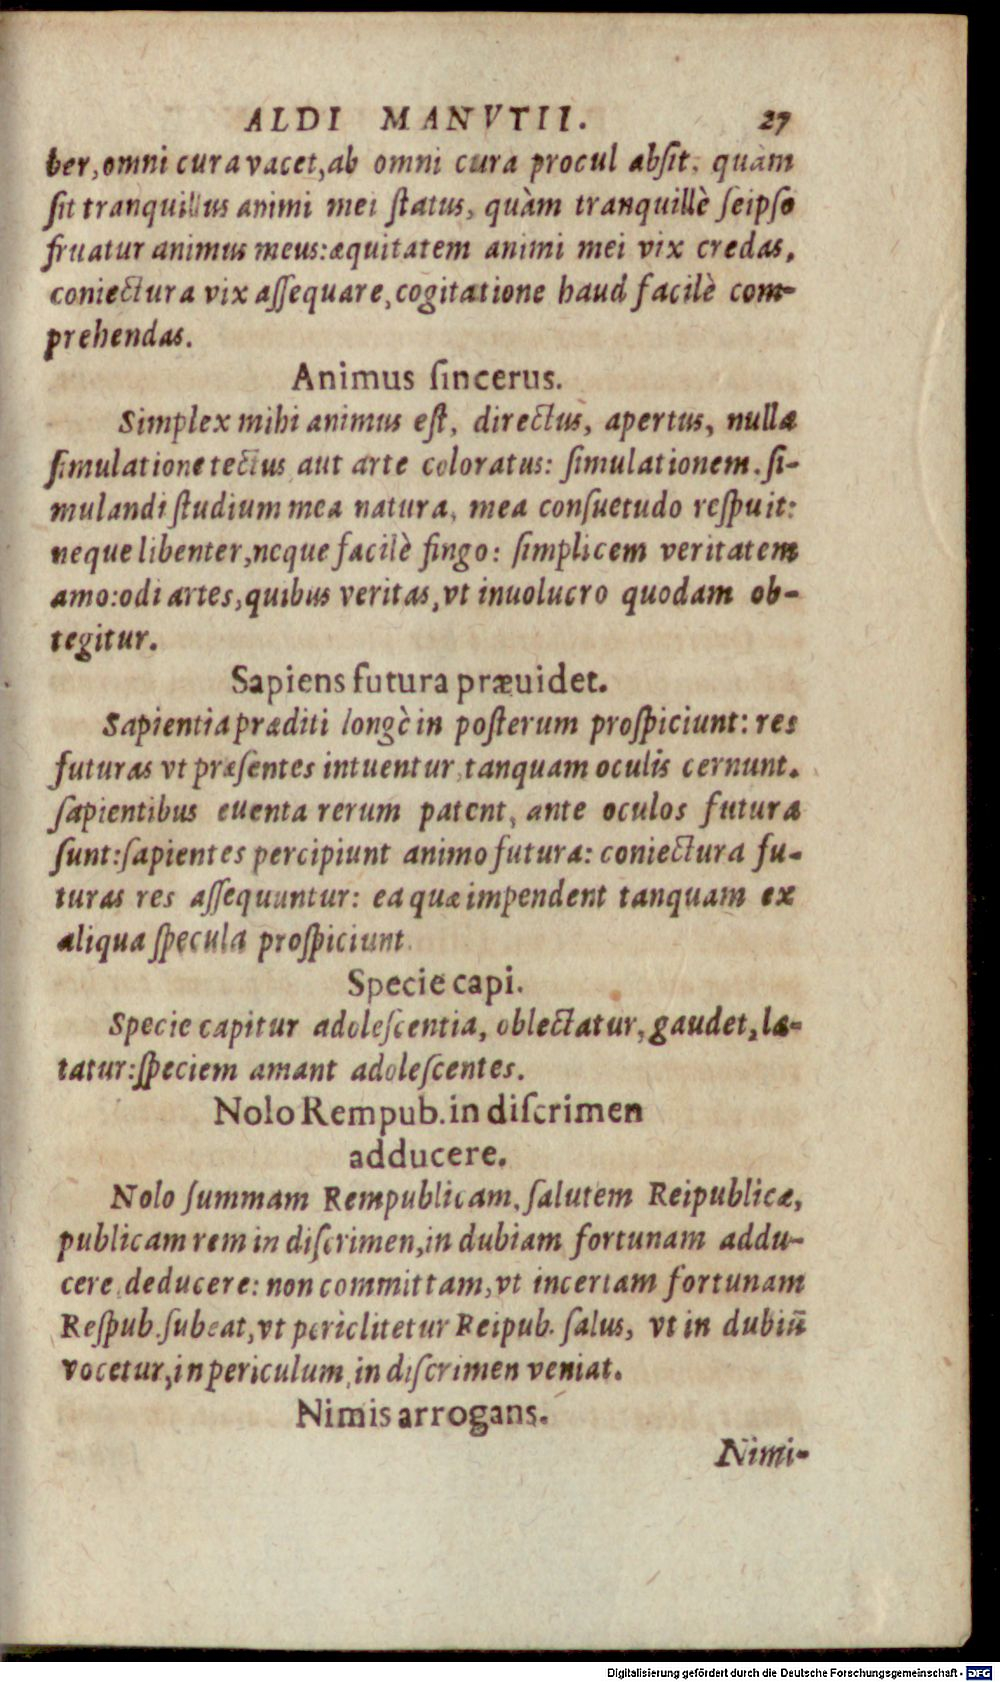 ALDI MANVTII. 27
ber, omni cura vacet, ab omni cura procul absit, quàm
sit tranquillus animi mei status, quàm tranquillè seipso
fruatur animus meus: æquitatem animi mei vix credas,
coniectura vix assequare, cogitatione haud facilè com-
prehendas.
Animus sincerus.
Simplex mihi animus est, directus, apertus, nulla
simulatione tectus aut arte coloratus: simulationem, si-
mulandi studium mea natura, mea consuetudo respuit:
neque libenter, neque facilè fingo: simplicem veritatem
amo: odi artes, quibus veritas, vt inuolucro quodam ob-
tegitur.
Sapiens futura præuidet.
Sapientia præditi longè in posterum prospiciunt: res
futuras vt præsentes intuentur, tanquam oculis cernunt.
sapientibus euenta rerum patent, ante oculos futura
sunt: sapientes percipiunt animo futura: coniectura fu-
turas res assequuntur: ea quæ impendent tanquam ex
aliqua specula prospiciunt.
Specie capi.
Specie capitur adolescentia, oblectatur, gaudet, læ-
tatur: speciem amant adolescentes.
Nolo Rempub. in discrimen
adducere.
Nolo summam Rempublicam, salutem Reipublicæ,
publicam rem in discrimen, in dubiam fortunam addu-
cere, deducere: non committam, vt incertam fortunam
Respub. subeat, vt periclitetur Reipub. salus, vt in dubiũ
vocetur, in periculum, in discrimen veniat.
Nimis arrogans.
Nimi-
Digitalisierung gefördert durch die Deutsche Forschungsgemeinschaft - DFG